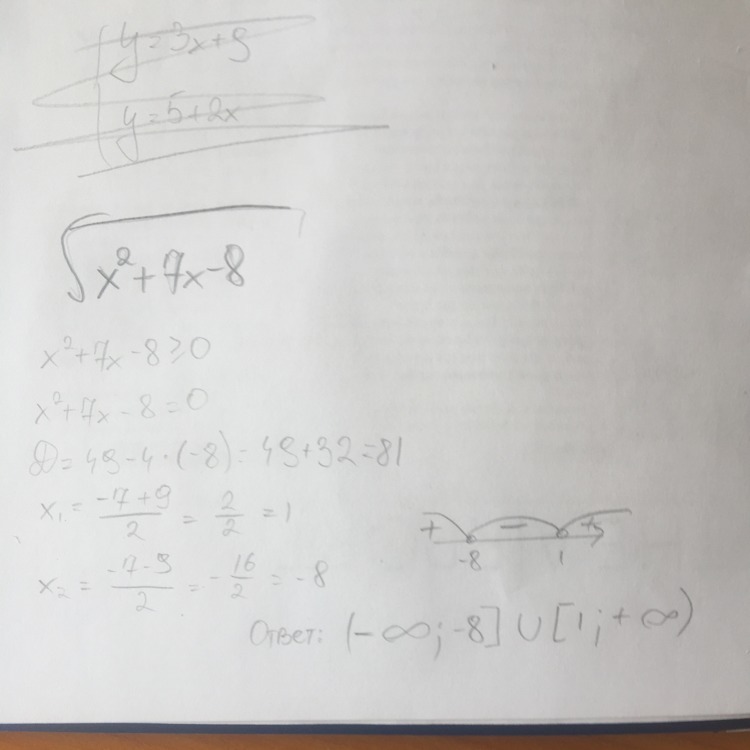 y=3x+9
y=5+2x
√x²+7x-8
x²+7x-8≥0
x²+7x-8=0
D=49-4·(-8)=49+32=81
x₁=(-7+9)/2=2/2=1
x₂=(-7-9)/2=-16/2=-8
+ - +
-8 1
Ответ: (-∞;-8]∪[1;+∞)